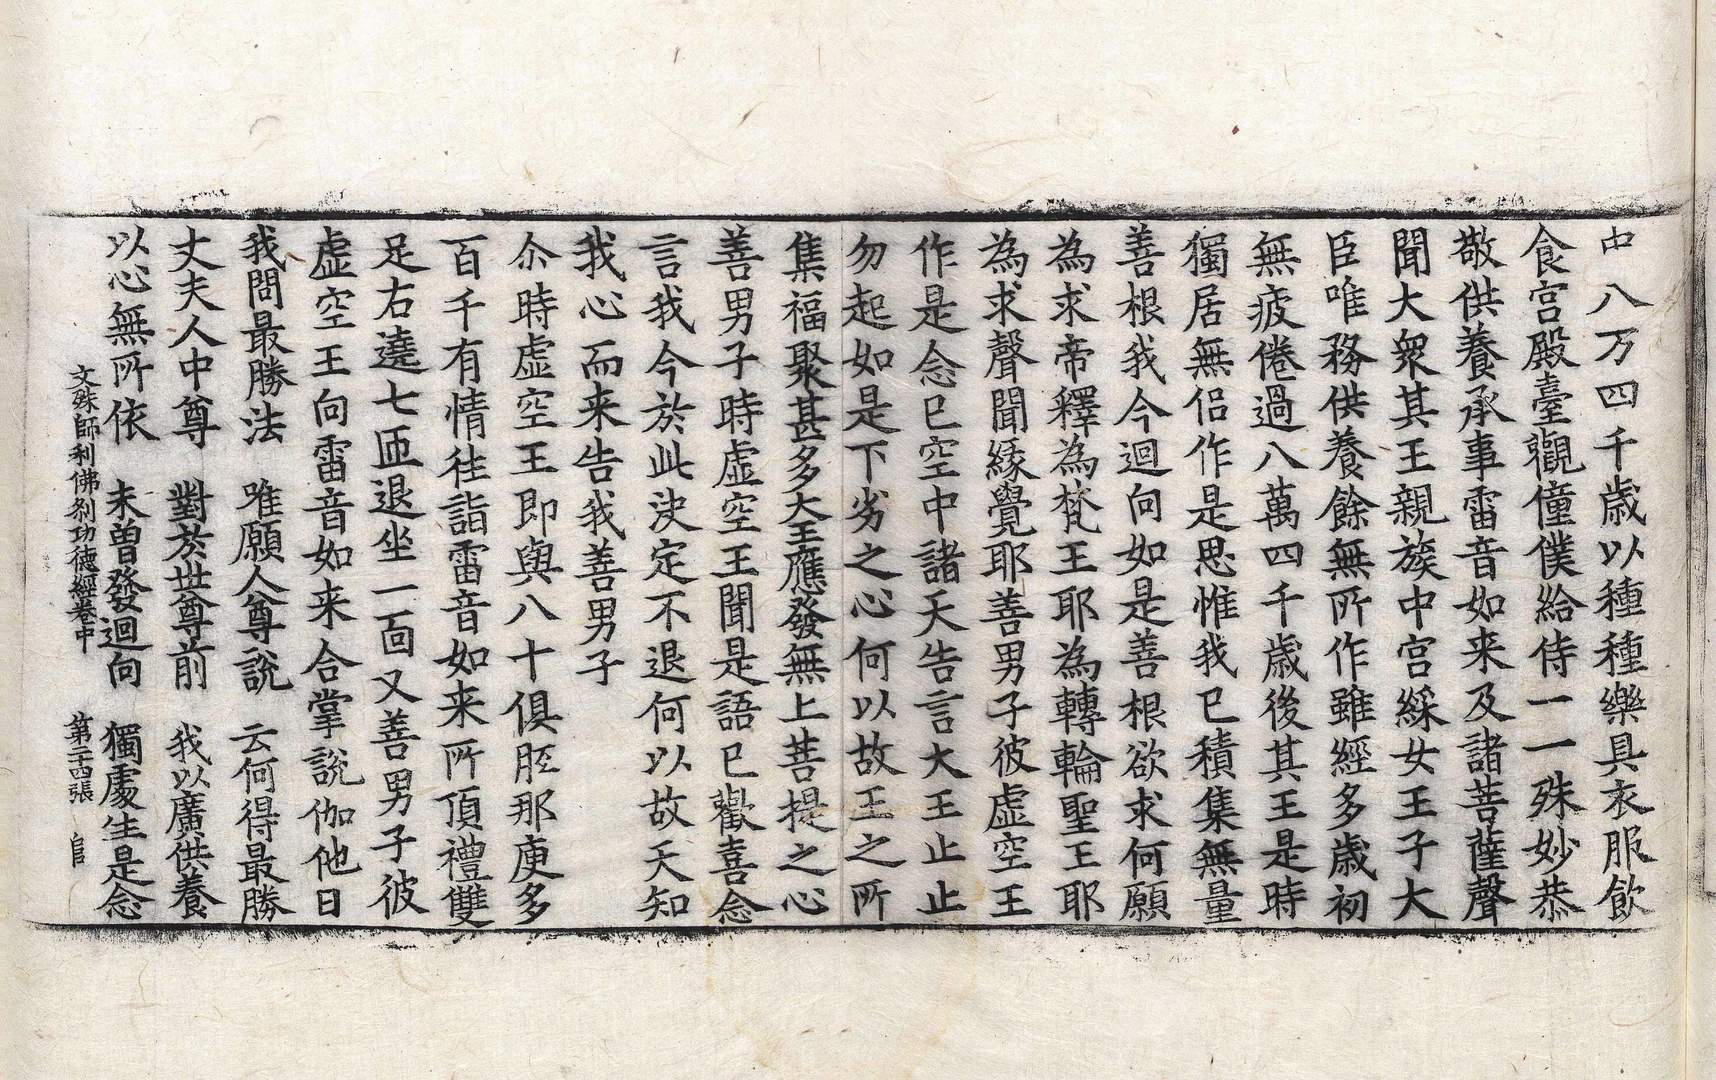 中八万四千歲以種種樂具衣服飲
食宮殿臺觀僮僕給侍一一殊妙恭
敬供養承事雷音如来及諸菩薩聲
聞大衆其王親族中宮綵女王子大
臣唯務供養餘無所作雖經多歲初
無疲倦過八萬四千歲後其王是時
獨居無侣作是思惟我已積集無量
善根我今迴向如是善根欲求何願
為求帝釋為梵王耶為轉輪聖王耶
為求聲聞緣覺耶善男子彼虛空王
作是念已空中諸天告言大王止止
勿起如是下劣之心何以故王之所
集福聚甚多大王應發無上菩提之心
善男子時虛空王聞是語已歡喜念
言我今於此決定不退何以故天知
我心而来告我善男子
尒時虛空王即與八十俱胝那庾多
百千有情往詣雷音如来所頂禮雙
足右遶七匝退坐一面又善男子彼
虛空王向雷音如来合掌說伽他曰
我問最勝法　唯願人尊說　云何得最勝
丈夫人中尊　對於世尊前　我以廣供養
以心無所依　未曾發迴向　獨處生是念
文殊師利佛剎功德經卷中　第二十四張